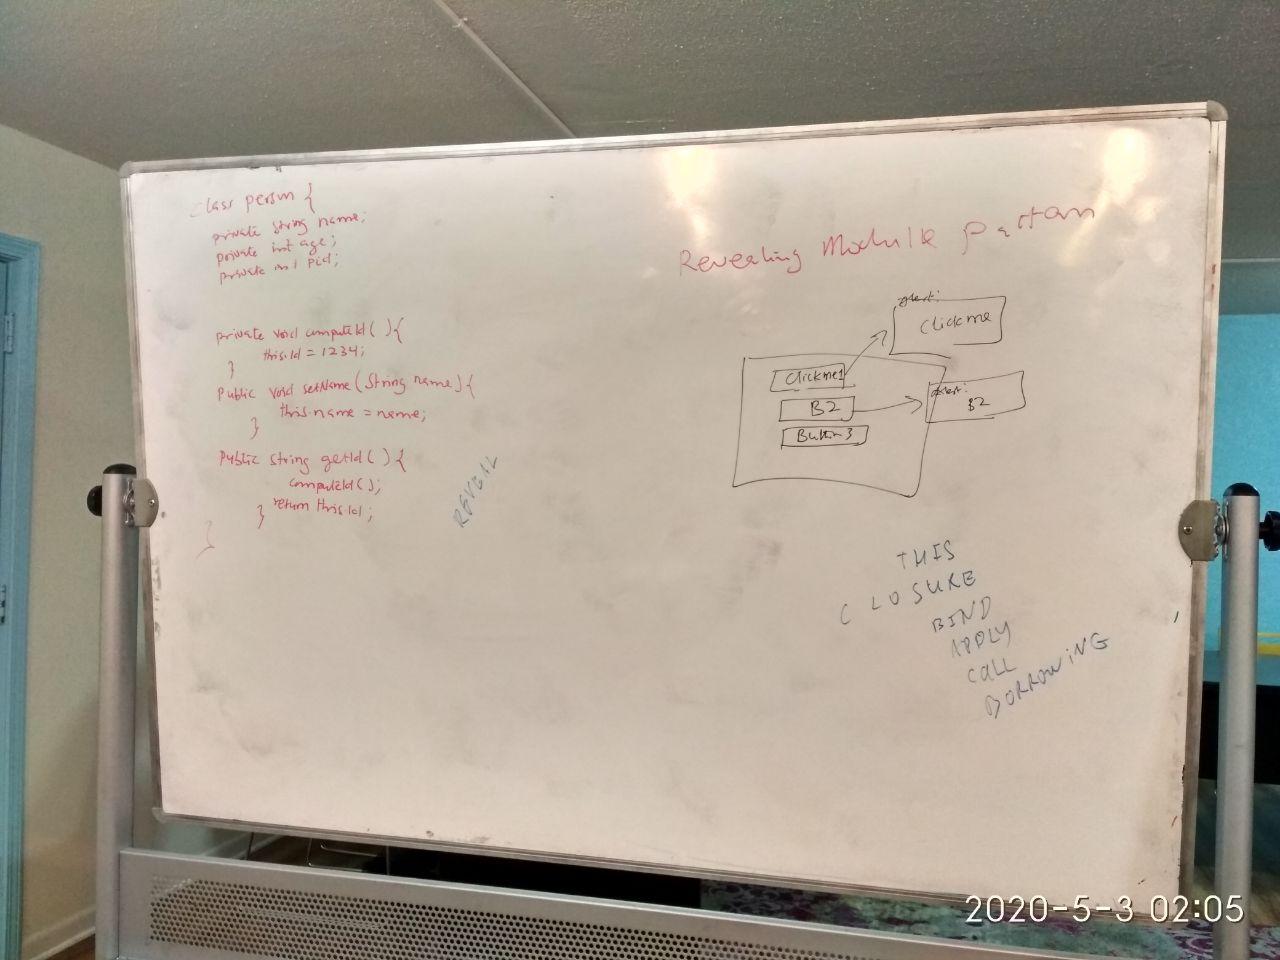 class person {
private string name;
private int age;
private int pid;
private void computeId( ) {
this.id = 1234;
}
Public void setName (String name) {
this.name = name;
}
Public string getId ( ) {
computeId( );
} return this.id ;
}
REVEAL
Revealing Module pattern
alert:
Clickme
Clickme1
alert:
B2
B2
Button3
THIS
CLOSURE
BIND
APPLY
CALL
BORROWING
2020-5-3 02:05